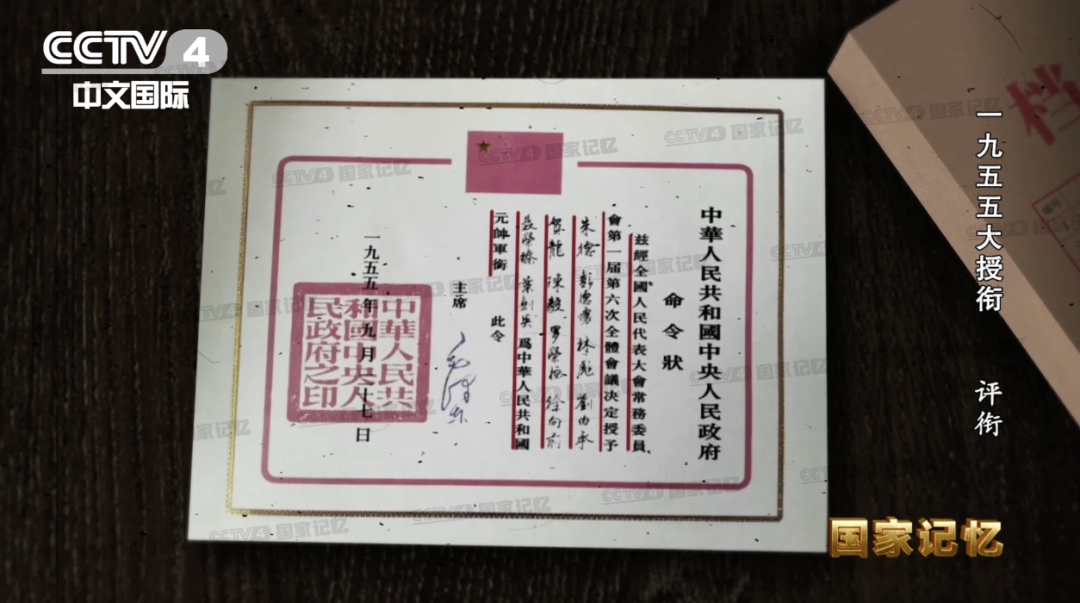 CCTV 4
中文国际
一九五五大授衔
评衔
档
编号
中華人民共和國中央人民政府
命令狀
兹經全國人民代表大會常務委員
會第一届第六次全體會議决定授予
朱德 彭德懷 林彪 劉伯承
賀龍 陳毅 羅榮桓 徐向前
聂榮臻 葉劍英 爲中華人民共和國
元帥軍銜 此令
主席 毛澤東
一九五五年九月二十七日
中華人民共
和國中央人
民政府之印
CCTV4 国家记忆
国家记忆